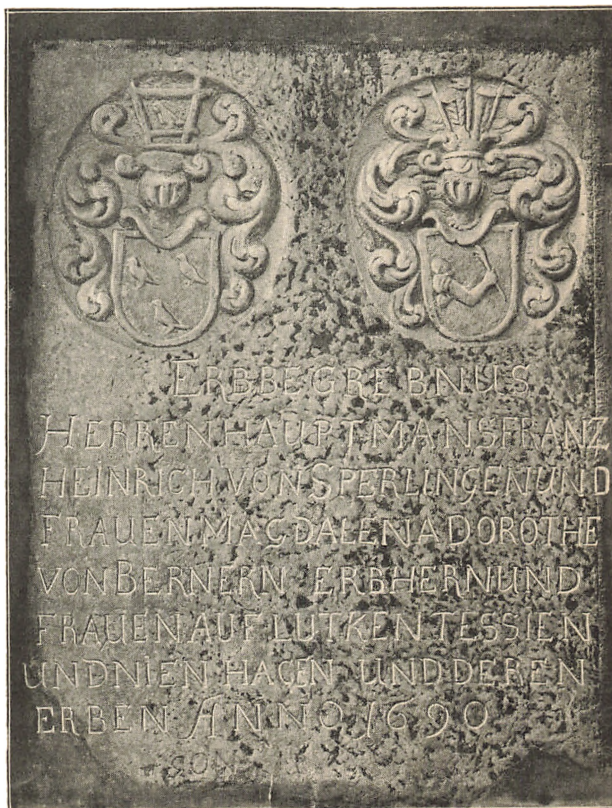 ERBBEGREBNUS
HERREN HAUPTMANS FRANZ
HEINRICH VON SPERLINGEN UND
FRAUEN MAGDALENA DOROTHE
VON BERNERN ERBHERN UND
FRAUEN AUF LUTKEN TESSIEN
UND NIEN HAGEN UND DEREN
ERBEN ANNO 1690